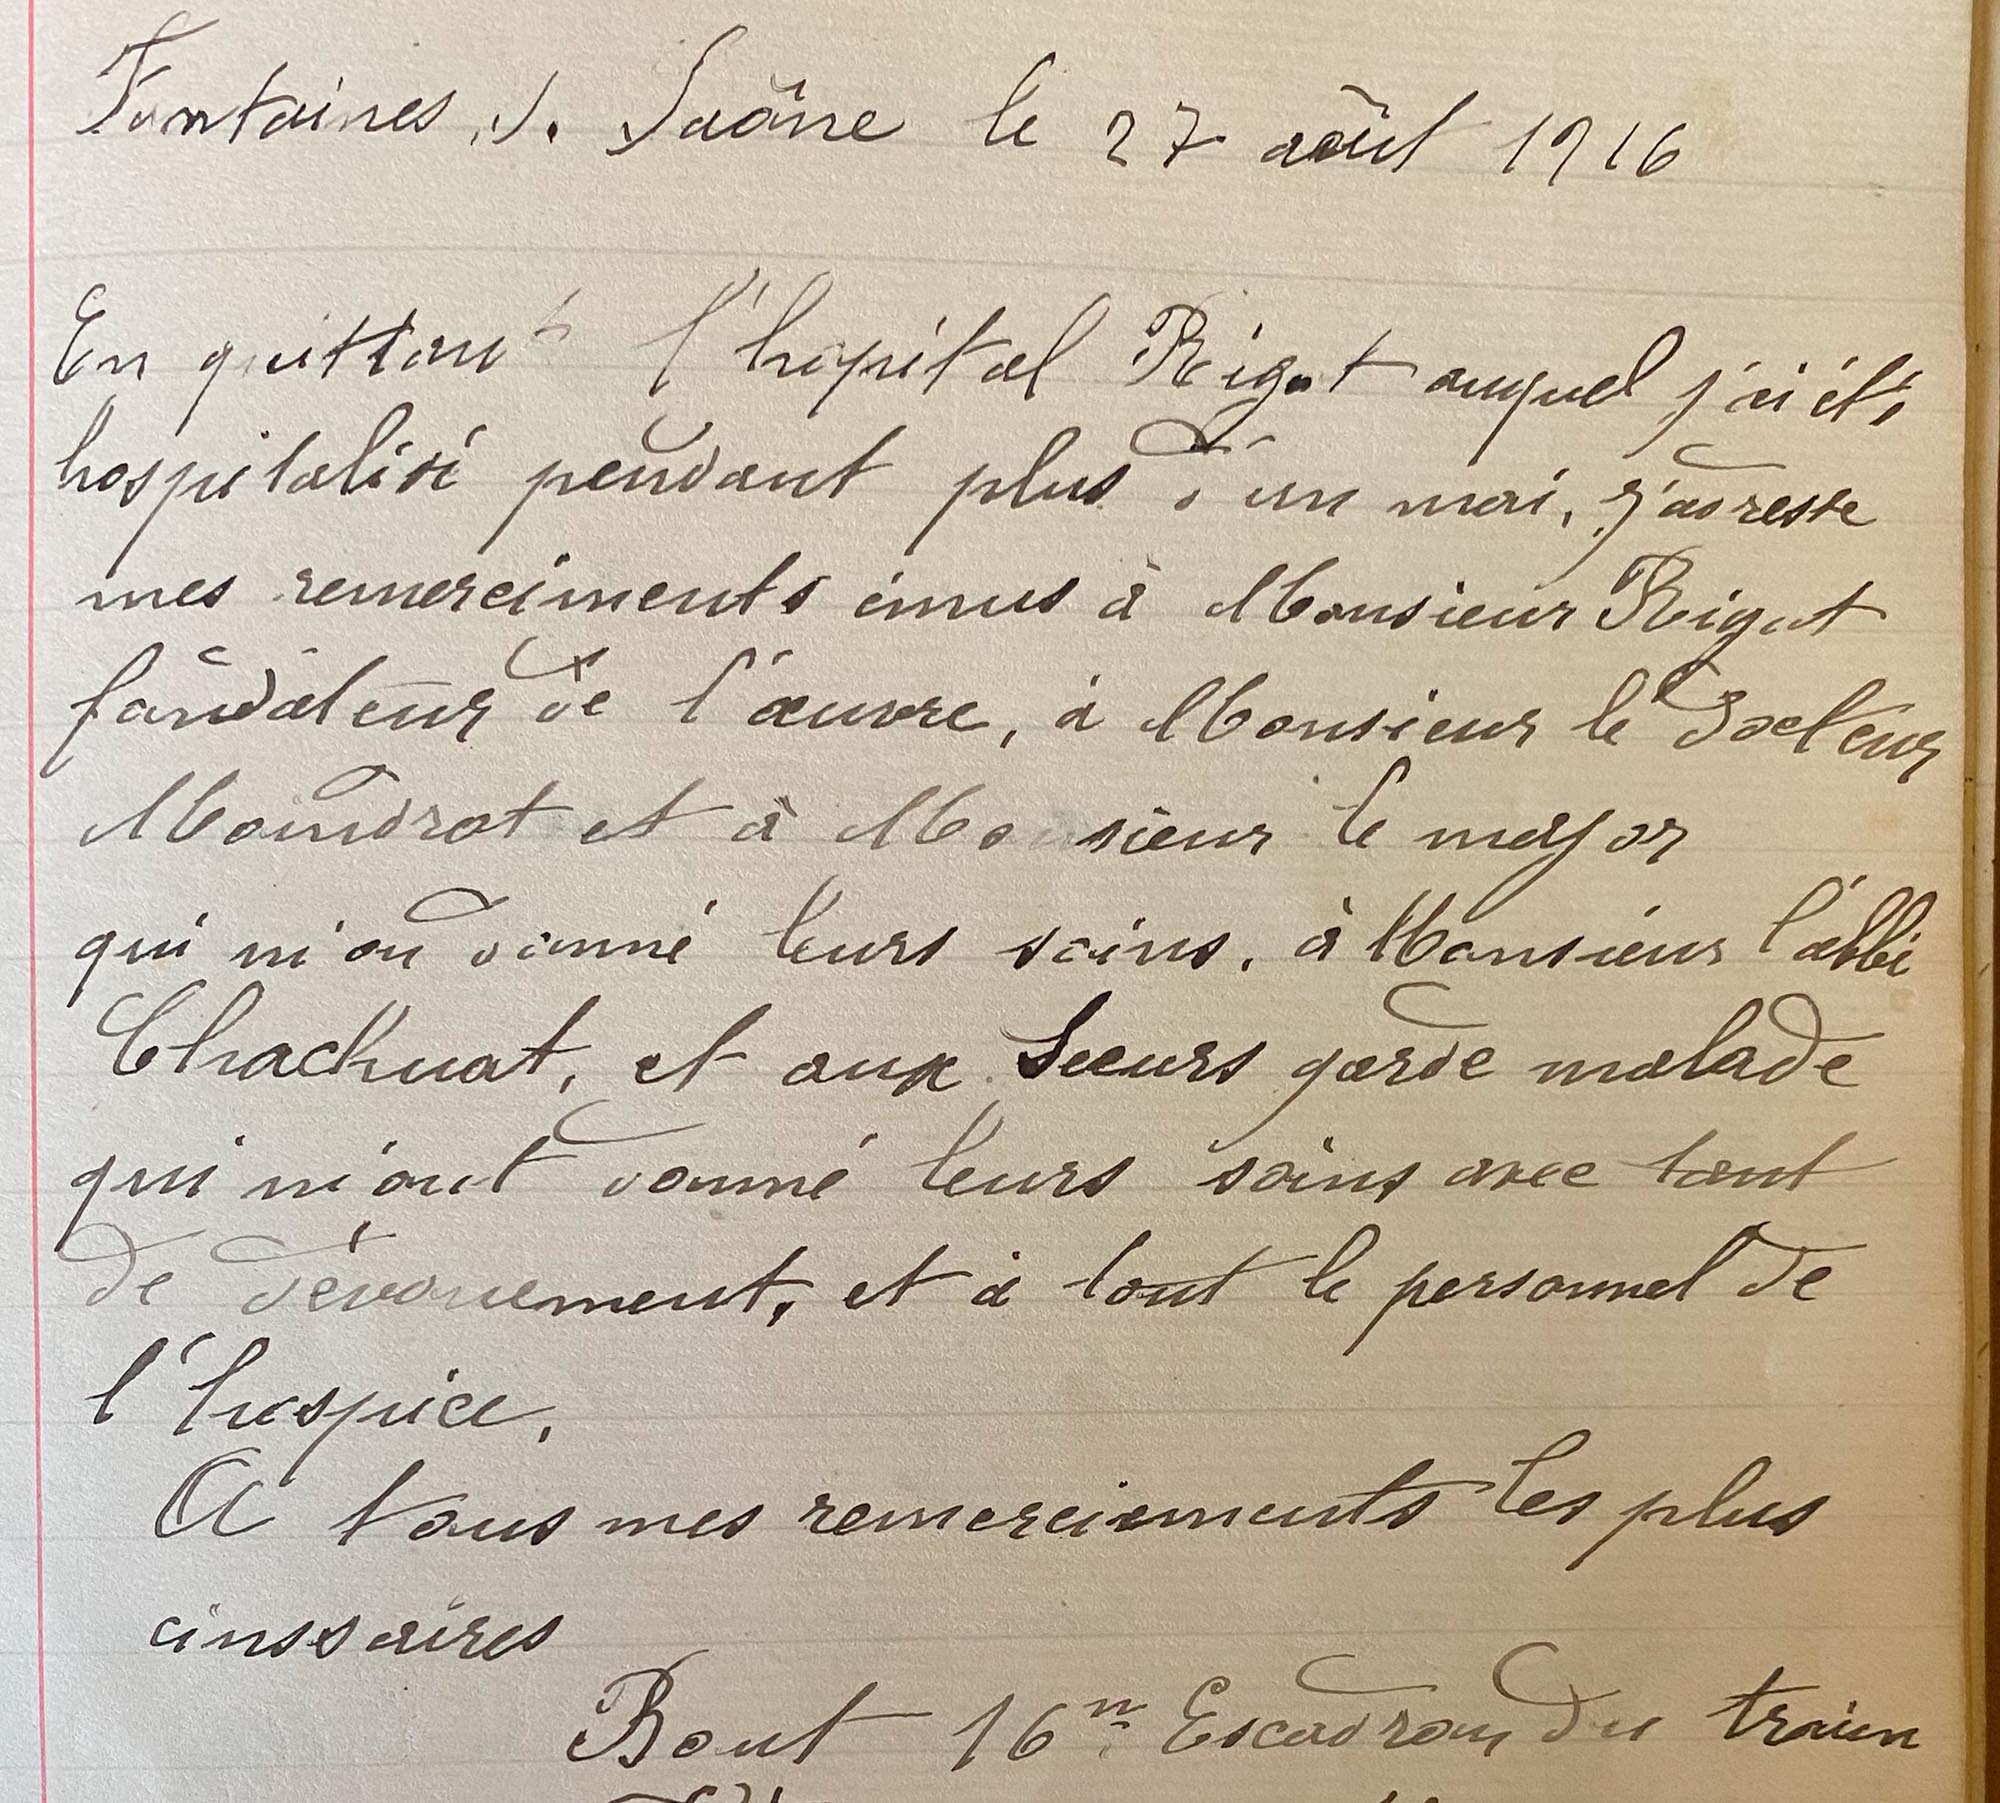 Fontaines s. Saône le 27 août 1916
En quittant l'hopital Rigot auquel j'ai été
hospitalisé pendant plus d'un moi, j'adresse
mes remerciments émus à Monsieur Rigot
fondateur de l'œuvre, à Monsieur le docteur
Moindrot et à Monsieur le major
qui m'on donné leurs soins, à Monsieur l'abbé
et aux Sœurs garde malade
qui m'ont donné leurs soins avec tant
de dévouement, et à tout le personnel de
l'hospice,
A tous mes remerciements les plus
cinssaires
Bout 16 Escadron du train